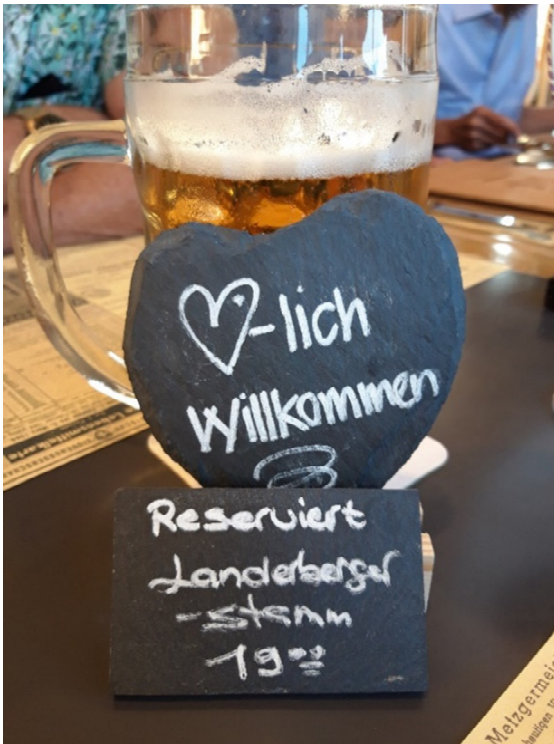 ♡-lich
Willkommen
Reserviert
Landerberger
-stamm
19⁰⁰
Metzgermeis